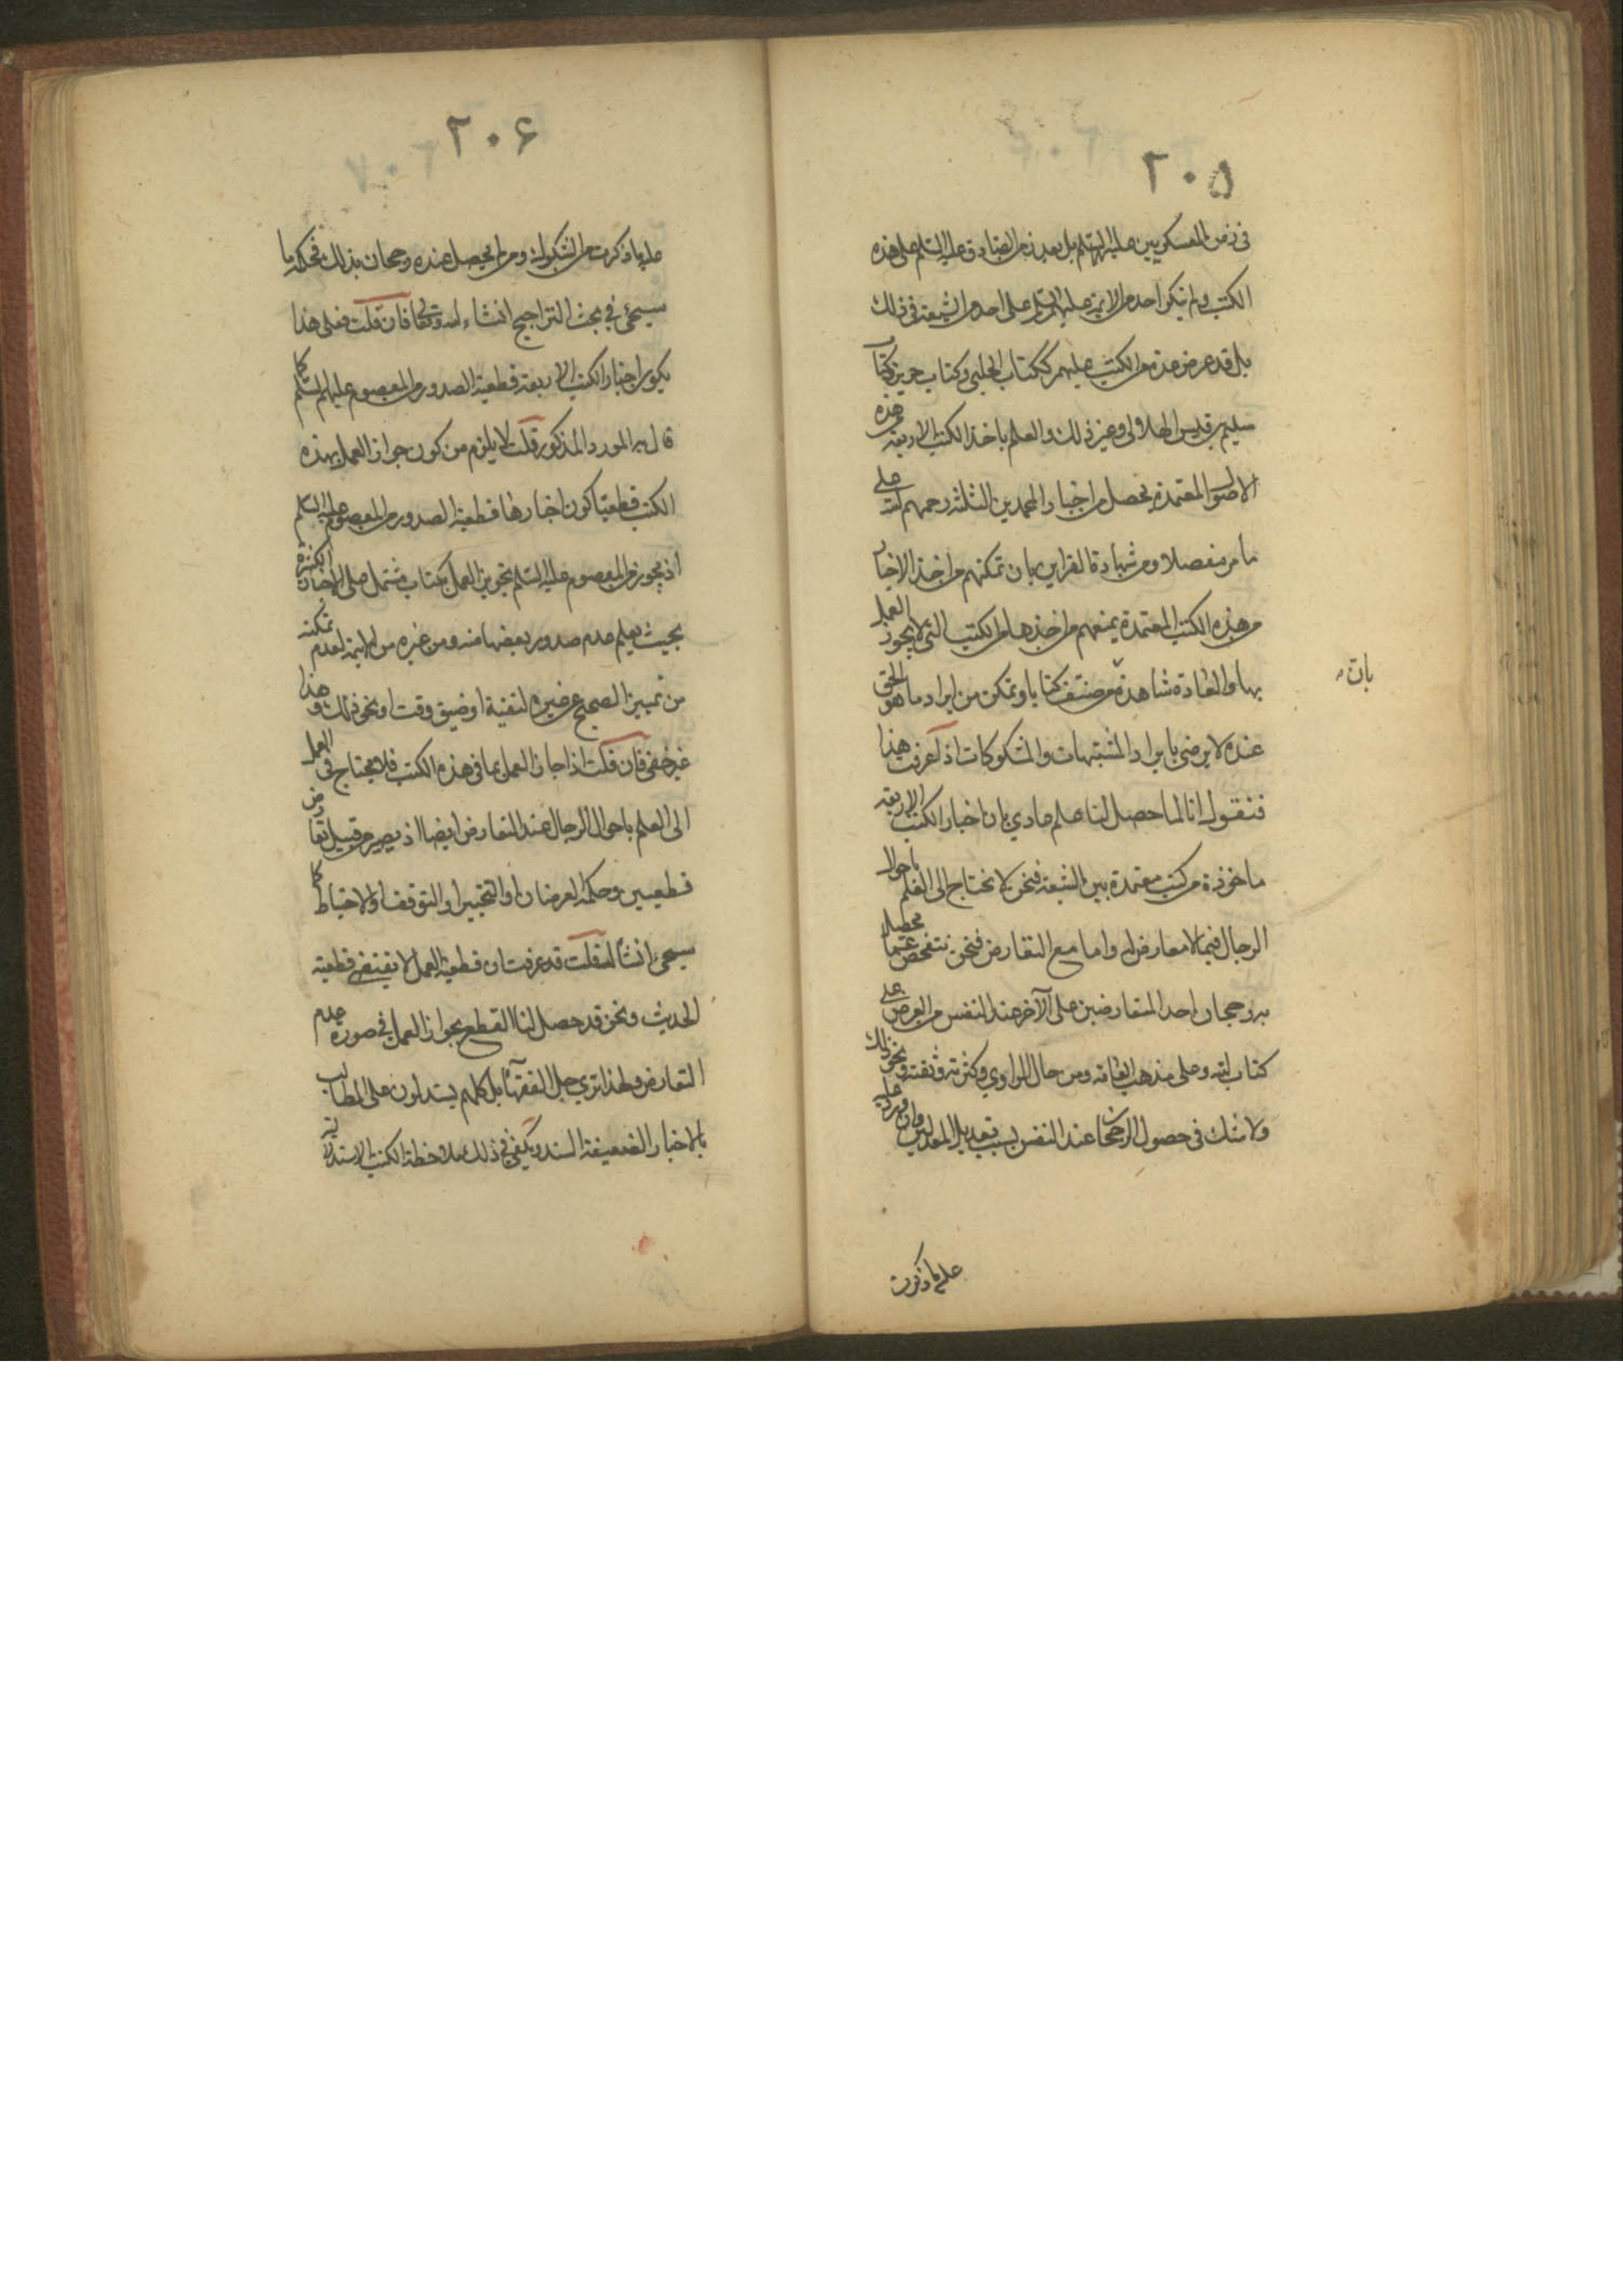 ٢٠٥
فى زمن العسكريين عليهما السلم بل بعد زمن الصادق عليه السلم على هذه
الكتب ولم ينكر احد من الائمة عليهم السلم على احد من الشيعة فى ذلك
بل قد عرض عدة من الكتب عليهم ككتاب الحلبي وكتاب حريز وكتاب
سليم بن قيس الهلالى وغير ذلك والعلم باخذ الكتب الاربعة من هذه
الاصول المعتمدة يحصل من اخبار المحمدين الثلثة رحمهم الله على
ما مر مفصلا ومن شهادة القراين بان تمكنهم من اخذ الاخبار
من هذه الكتب المعتمدة يمنعهم من اخذها من الكتب التى لا يجوز العمل
بها والعادة شاهدة بان من صنف كتابا وتمكن من ايراد ما هو الحق
بان
عنده لا يرضى بايراد المشتبهات والمشكوكات اذا عرفت هذا
فنقول انا لما حصل لنا علم عادي بان اخبار الكتب الاربعة
ماخوذة من كتب معتمدة بين الشيعة فنحن لا نحتاج الى العلم باحوال
الرجال فيما لا معارض له واما مع التعارض فنحن نتفحص عما يحصل
به رجحان احد المتعارضين على الآخر عند النفس من العرض على
كتاب الله وعلى مذهب العامة ومن حال الراوي وكثرته وثقته ونحو ذلك
ولا شك فى حصول الرجحان عند النفس بسبب تعديل المعدلين وان ورد عليه
على ما ذكرت
٢٠۶
على ما ذكرت من الشكوك ومن لم يحصل عنده رجحان بذلك فحكمه ما
سيجئ في بحث التراجيح انشاء الله تعالى فان قلت فعلى هذا
يكون اخبار الكتب الاربعة قطعية الصدور من المعصوم عليهم السلم كما
قال به المورد المذكور قلت لا يلزم من كون جواز العمل بهذه
الكتب قطعيا كون اخبارها قطعية الصدور من المعصوم عليه السلم
اذ يجوز من المعصوم عليه السلم تجويز العمل بكتاب مشتمل على الاخبار الكثيرة
بحيث يعلم عدم صدور بعضها منه ومن غيره من الائمة لعدم تمكنه
من تمييز الصحيح عن غيره لتقية او ضيق وقت او نحو ذلك وهذا
غير خفى فان قلت اذا جاز العمل بما فى هذه الكتب فلا يحتاج فى العمل
الى العلم باحوال الرجال عند التعارض ايضا اذ يصير من قبيل تعارض
قطعيين وحكمه العرضان او التخيير او التوقف او الاحتياط كما
سيجئ انشاء الله قلت قد عرفت ان قطعية العمل لا يقتضى قطعية
الحديث ونحن قد حصل لنا القطع بجواز العمل فى صورة عدم
التعارض ولهذا ترى جل الفقهاء بل كلهم يستدلون على المطالب
بالاخبار الضعيفة السند ويكفى فى ذلك ملاحظة الكتب الاستدلالية